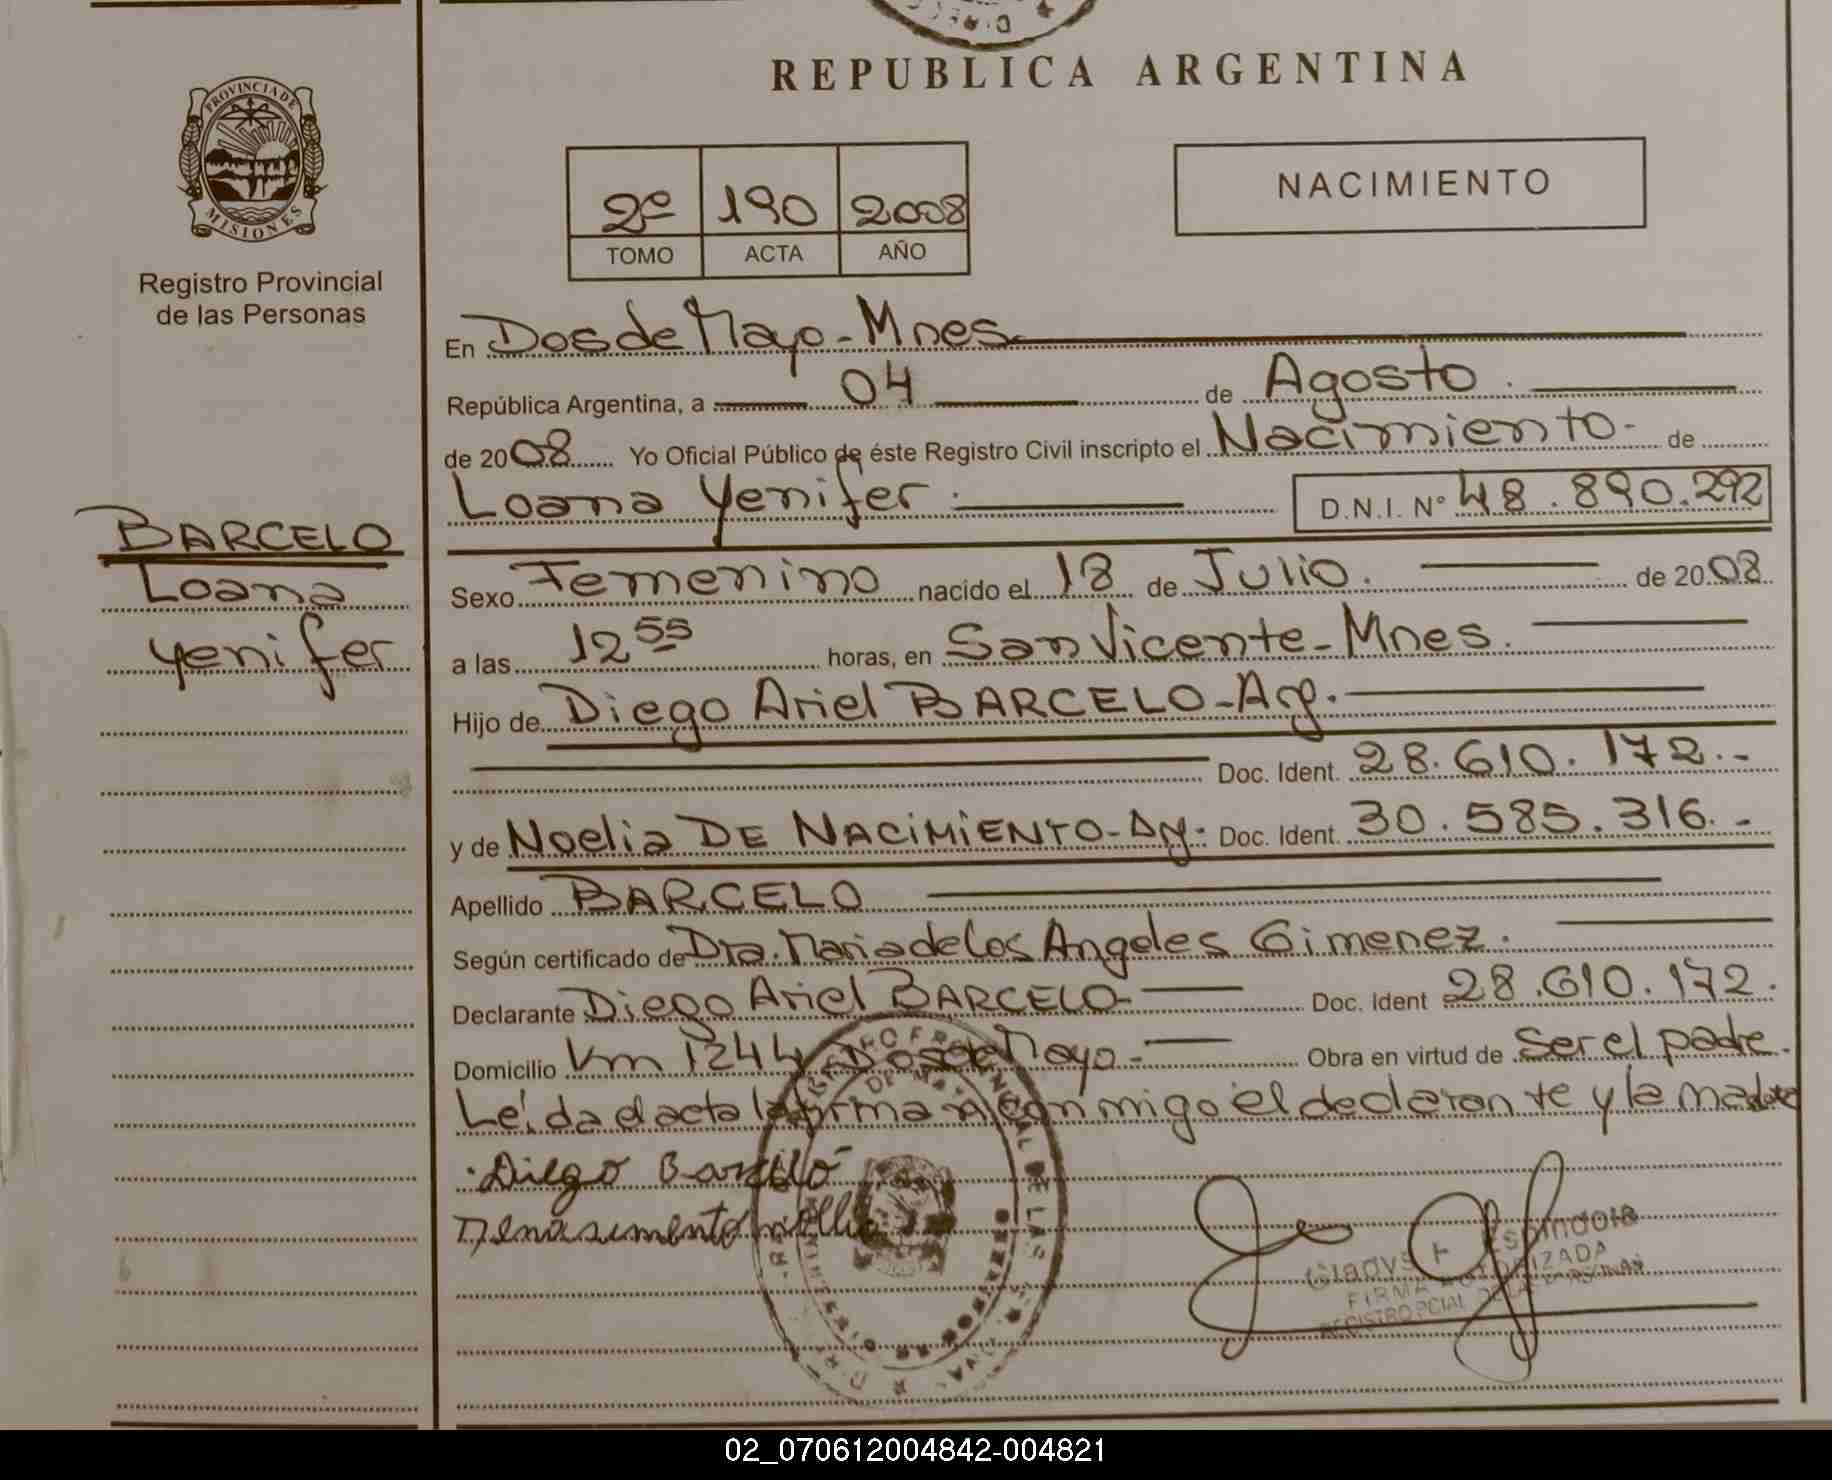 REPUBLICA ARGENTINA
PROVINCIA DE
MISIONES
Registro Provincial
de las Personas
2º 190 2008
TOMO ACTA AÑO
NACIMIENTO
BARCELO
Loana
Yenifer
En Dos de Mayo - Mnes.
República Argentina, a 04 de Agosto.
de 2008 Yo Oficial Público de éste Registro Civil inscripto el Nacimiento - de
Loana Yenifer. D.N.I. N° 48.890.292
Sexo Femenino nacido el 18 de Julio. de 2008
a las 12 55 horas, en San Vicente - Mnes.
Hijo de Diego Ariel BARCELO - Arg.
Doc. Ident. 28.610.172.-
y de Noelia DE NACIMIENTO - Arg. Doc. Ident. 30.585.316.-
Apellido BARCELO
Según certificado de Dra. Maria de los Angeles Gimenez.
Declarante Diego Ariel BARCELO - Doc. Ident 28.610.172.
Domicilio Km 1244 Dos de Mayo - Obra en virtud de Ser el padre.
Leída el acta la firman conmigo el declarante y la madre
Diego Barceló
Denasimento noelia
Gladys Espindola
FIRMA AUTORIZADA
REGISTRO PCIAL DE LAS PERSONAS
02_070612004842-004821